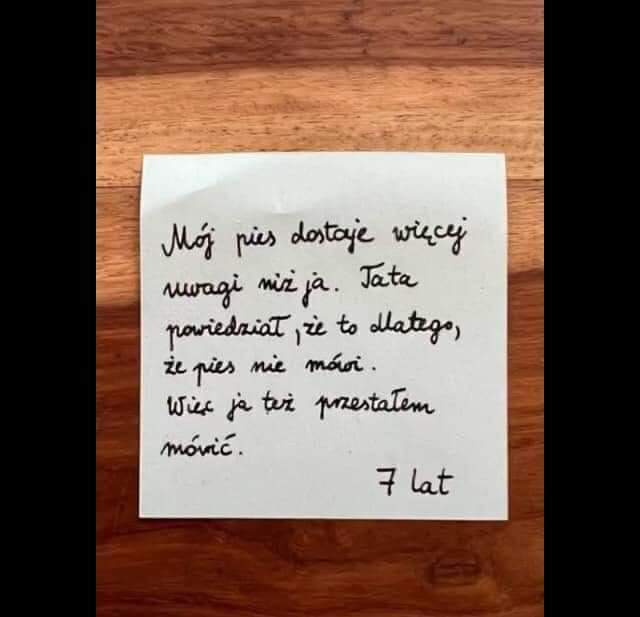 Mój pies dostaje więcej
uwagi niż ja. Tata
powiedział, że to dlatego,
że pies nie mówi.
Więc ja też przestałem
mówić.
7 lat